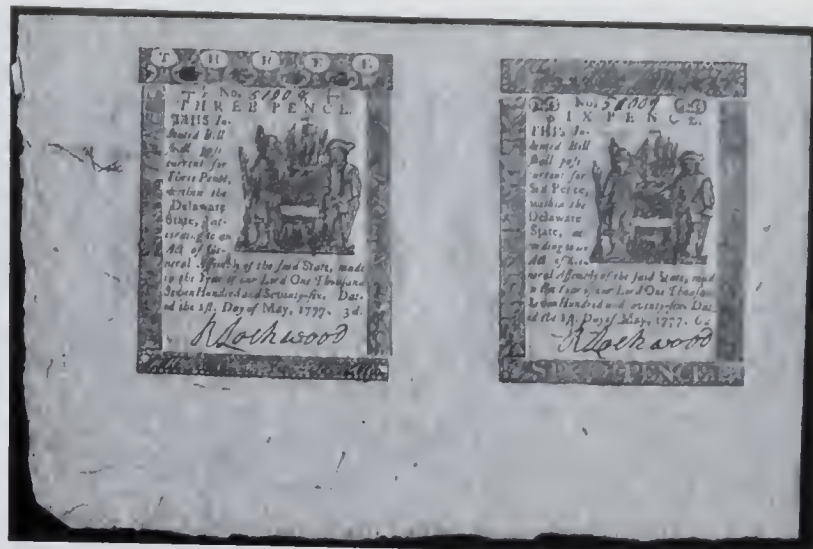 T H R E E
No. 51009
THREE PENCE.
THIS In-
dented Bill
shall pass
current for
Three Pence,
within the
Delaware
State, ac-
cording to an
Act of Ge-
neral Assembly of the said State, made
in the Year of our Lord One Thousand
Seven Hundred and Seventy-six. Dat-
ed the 1st. Day of May, 1777. 3d.
R Lockwood
No. 51009
SIX PENCE.
THIS In-
dented Bill
shall pass
current for
Six Pence,
within the
Delaware
State, ac-
cording to an
Act of Ge-
neral Assembly of the said State, made
in the Year of our Lord One Thousand
Seven Hundred and Seventy-six. Dat-
ed the 1st. Day of May, 1777. 6d
R Lockwood
SIX PENCE